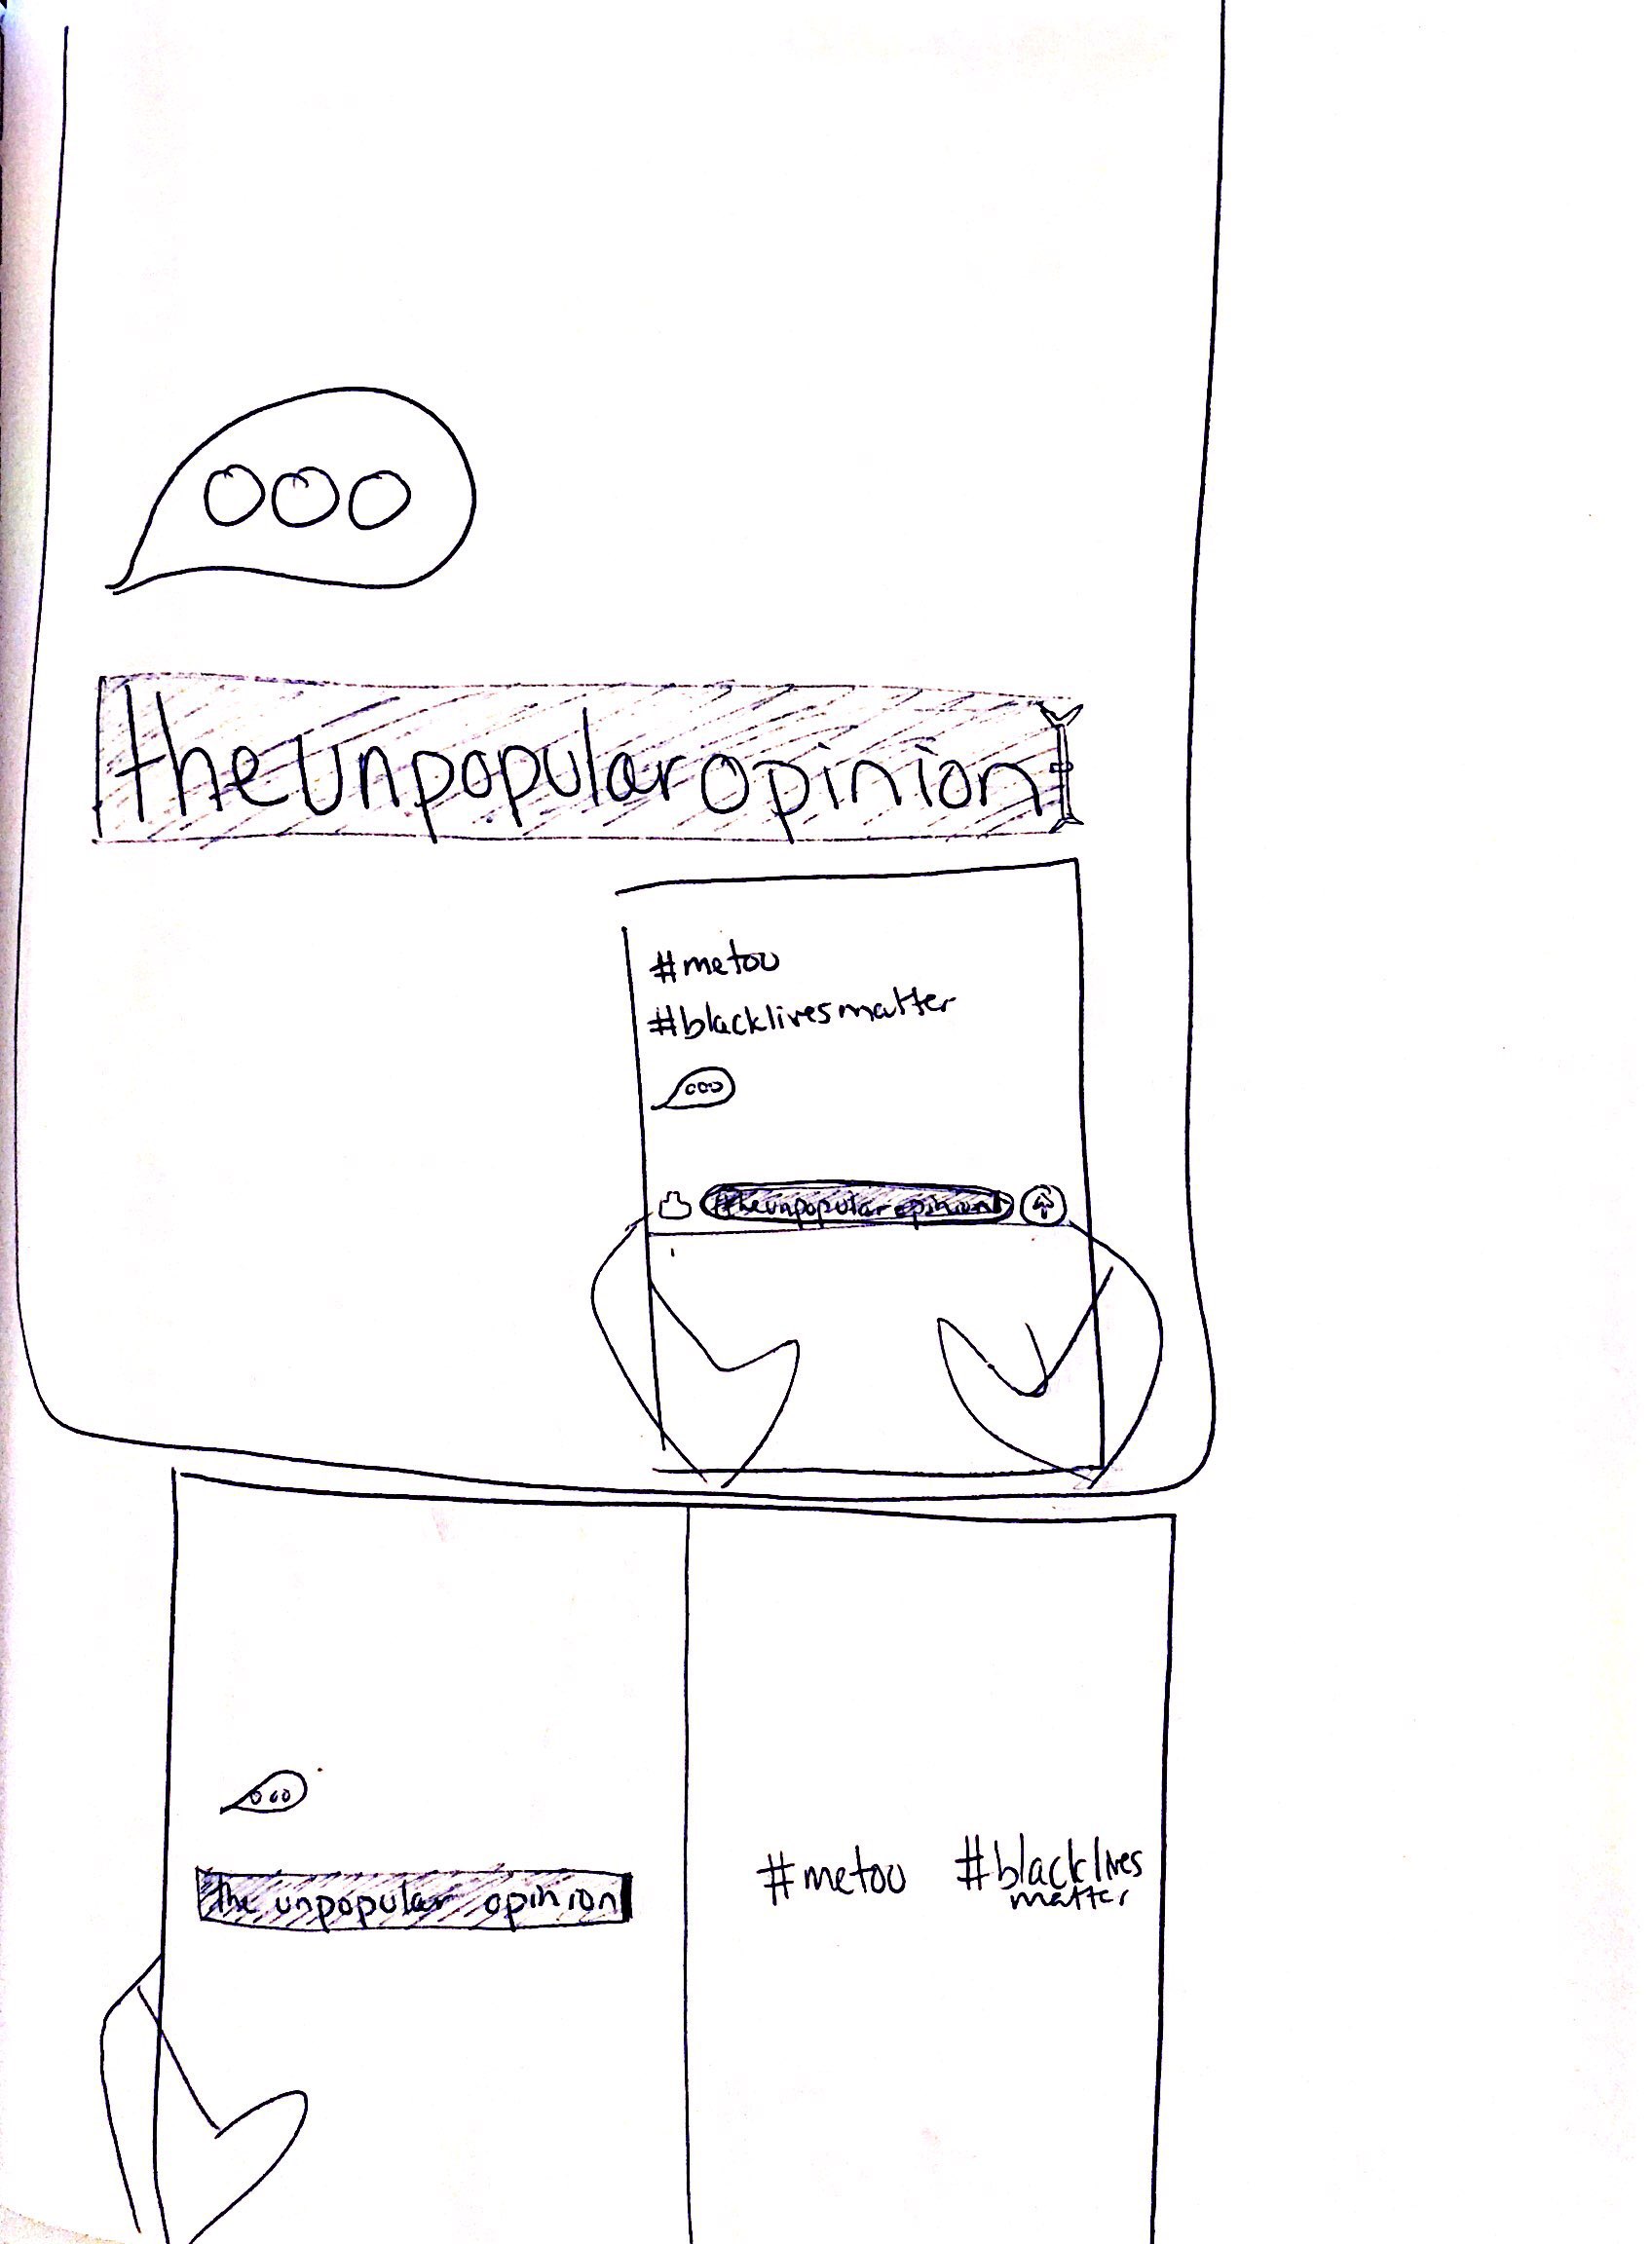 theunpopularopinion
#metoo
#blacklivesmatter
#theunpopularopinion
the unpopular opinion
#metoo #blacklives
matter